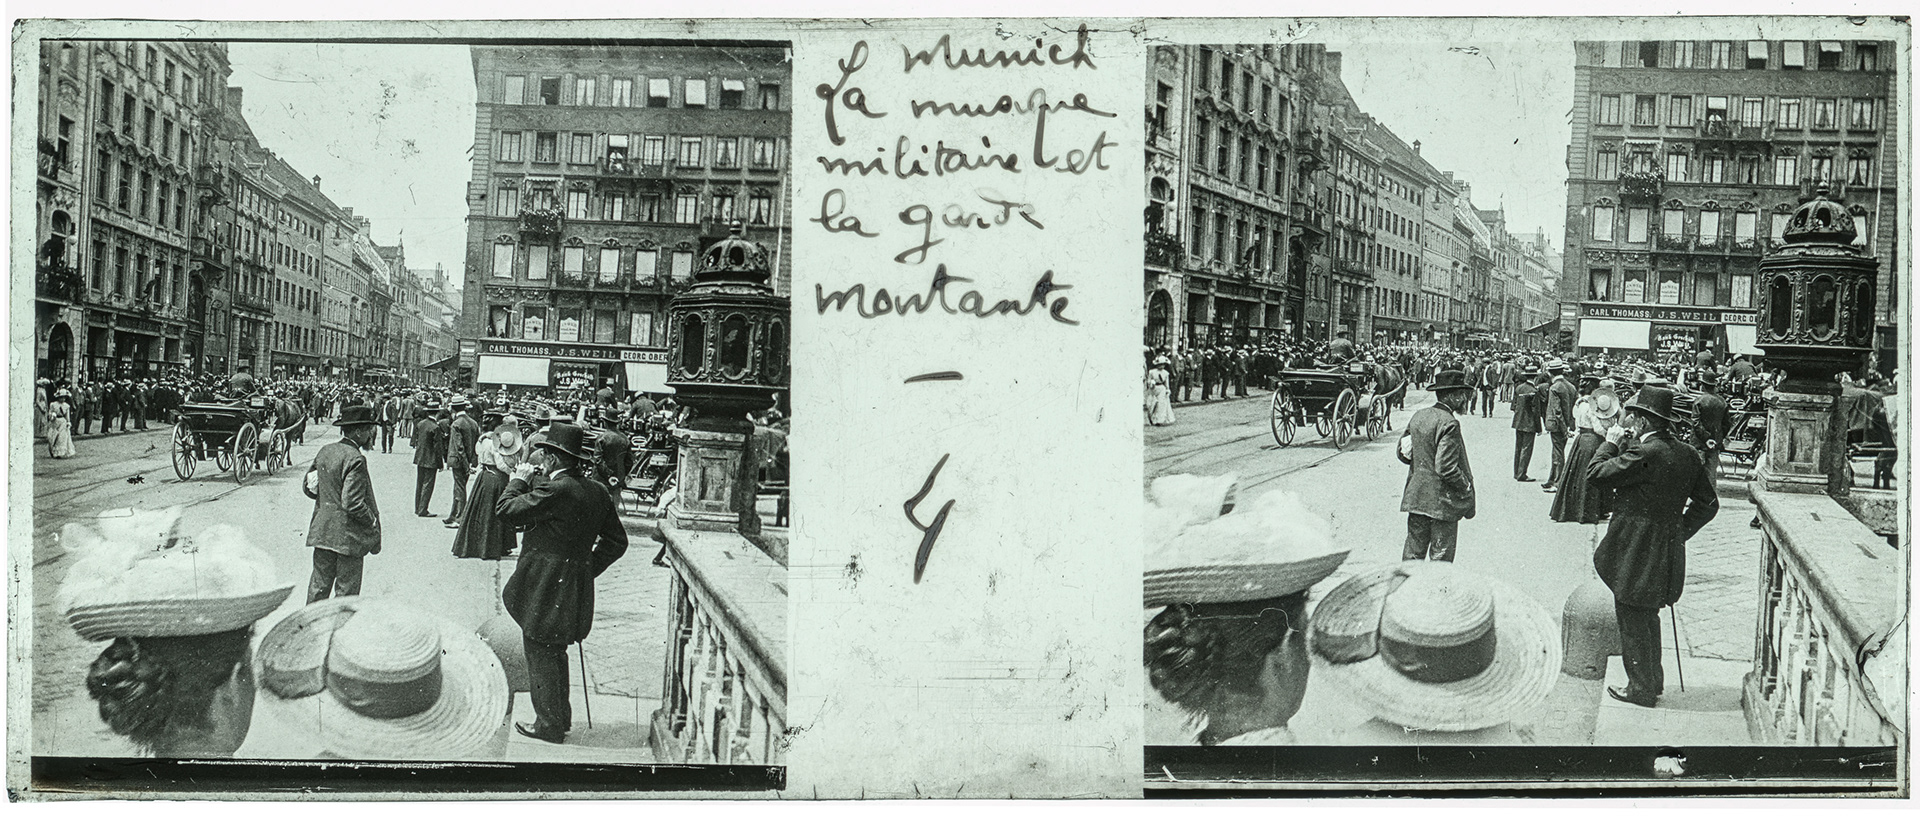 Munich
La musique
militaire et
la garde
montante
4
CARL THOMASS. J.S. WEIL GEORG OBER
J.S. Weil
CARL THOMASS. J.S. WEIL GEORG OB
J.S. Weil